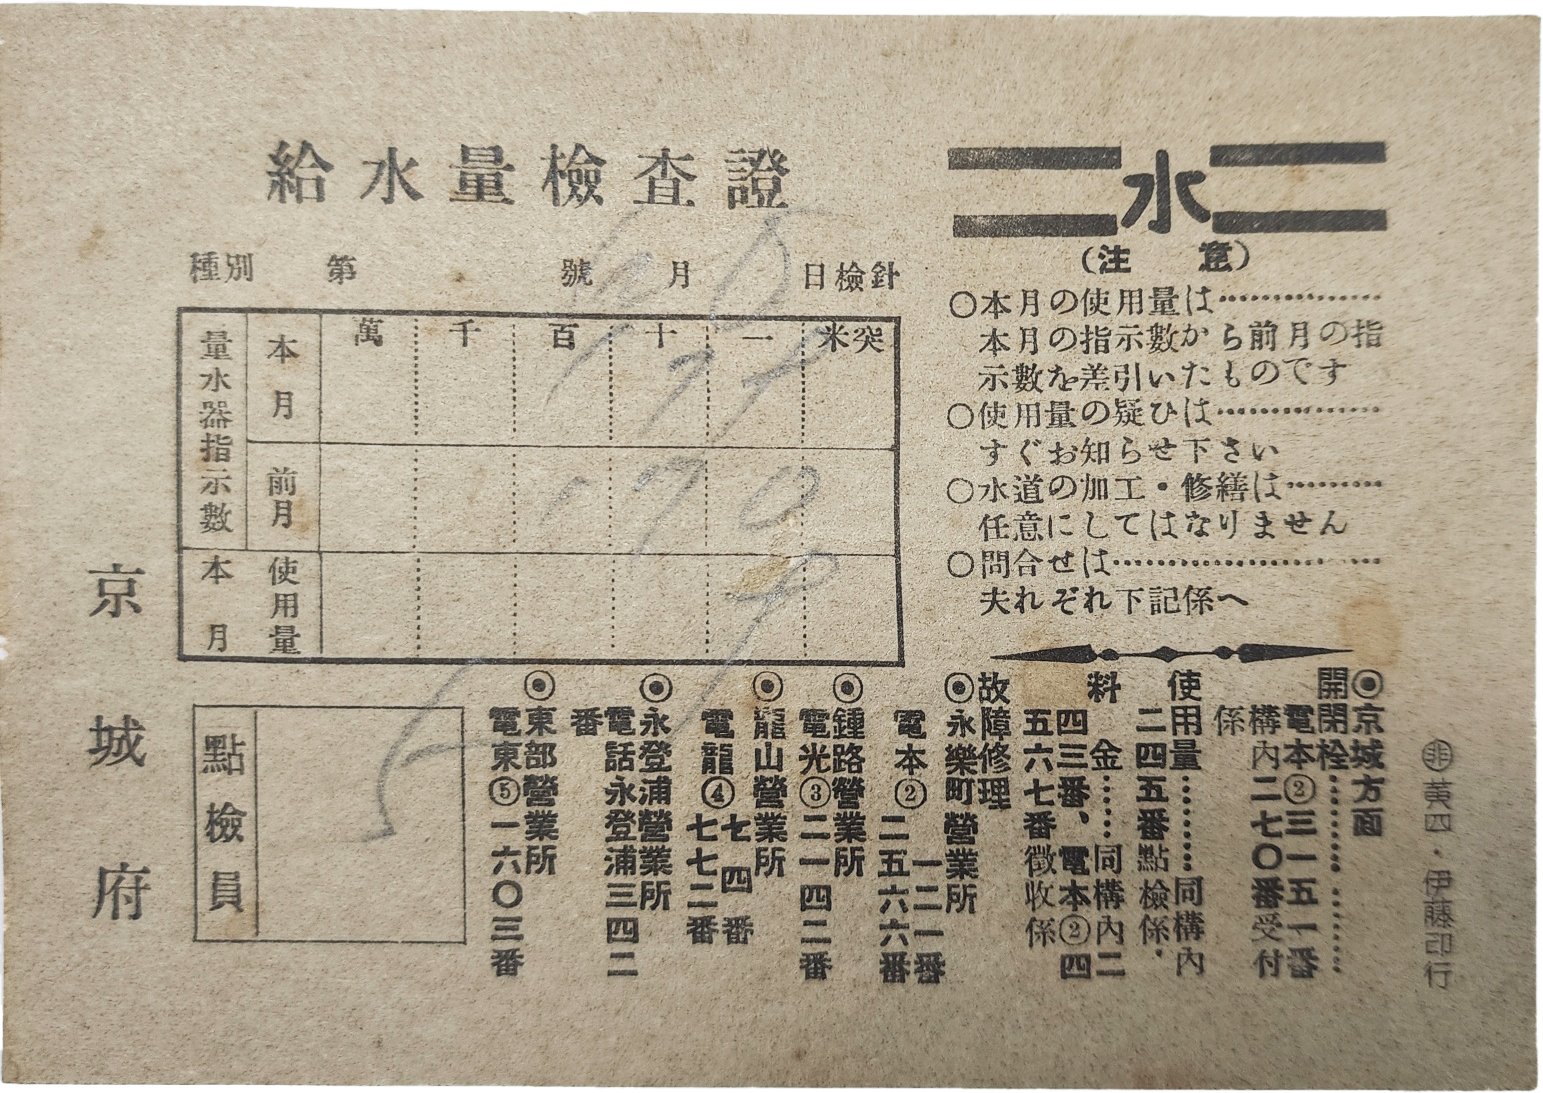 給水量檢査證
種別　第　號　月　日檢針
量水器指示數
本月
前月
萬　千　百　十　一　米突
本月使用量
179
170
9
點檢員
京城府
水
(注意)
○本月の使用量は……………
本月の指示數から前月の指
示數を差引いたものです
○使用量の疑ひは……………
すぐお知らせ下さい
○水道の加工・修繕は………
任意にしてはなりません
○問合せは……………………
夫れぞれ下記係へ
◉京城方面
開閉栓……………
電本②三一五一番
構内二七〇番受付
係
使用量………同構内
二四五番點檢係・
料金……同構內二
四三番、電本②四
五六七番徵收係
故障修理
◉永樂町營業所
一二一番
電本②二五六六番
◉鍾路營業所
電光③二一四二番
◉龍山營業所
七四番
電龍④七七二番
◉永登浦營業所
電話永登浦三四二
番
◉東部營業所
電東⑤一六〇三番
㊫黃四・伊藤印行